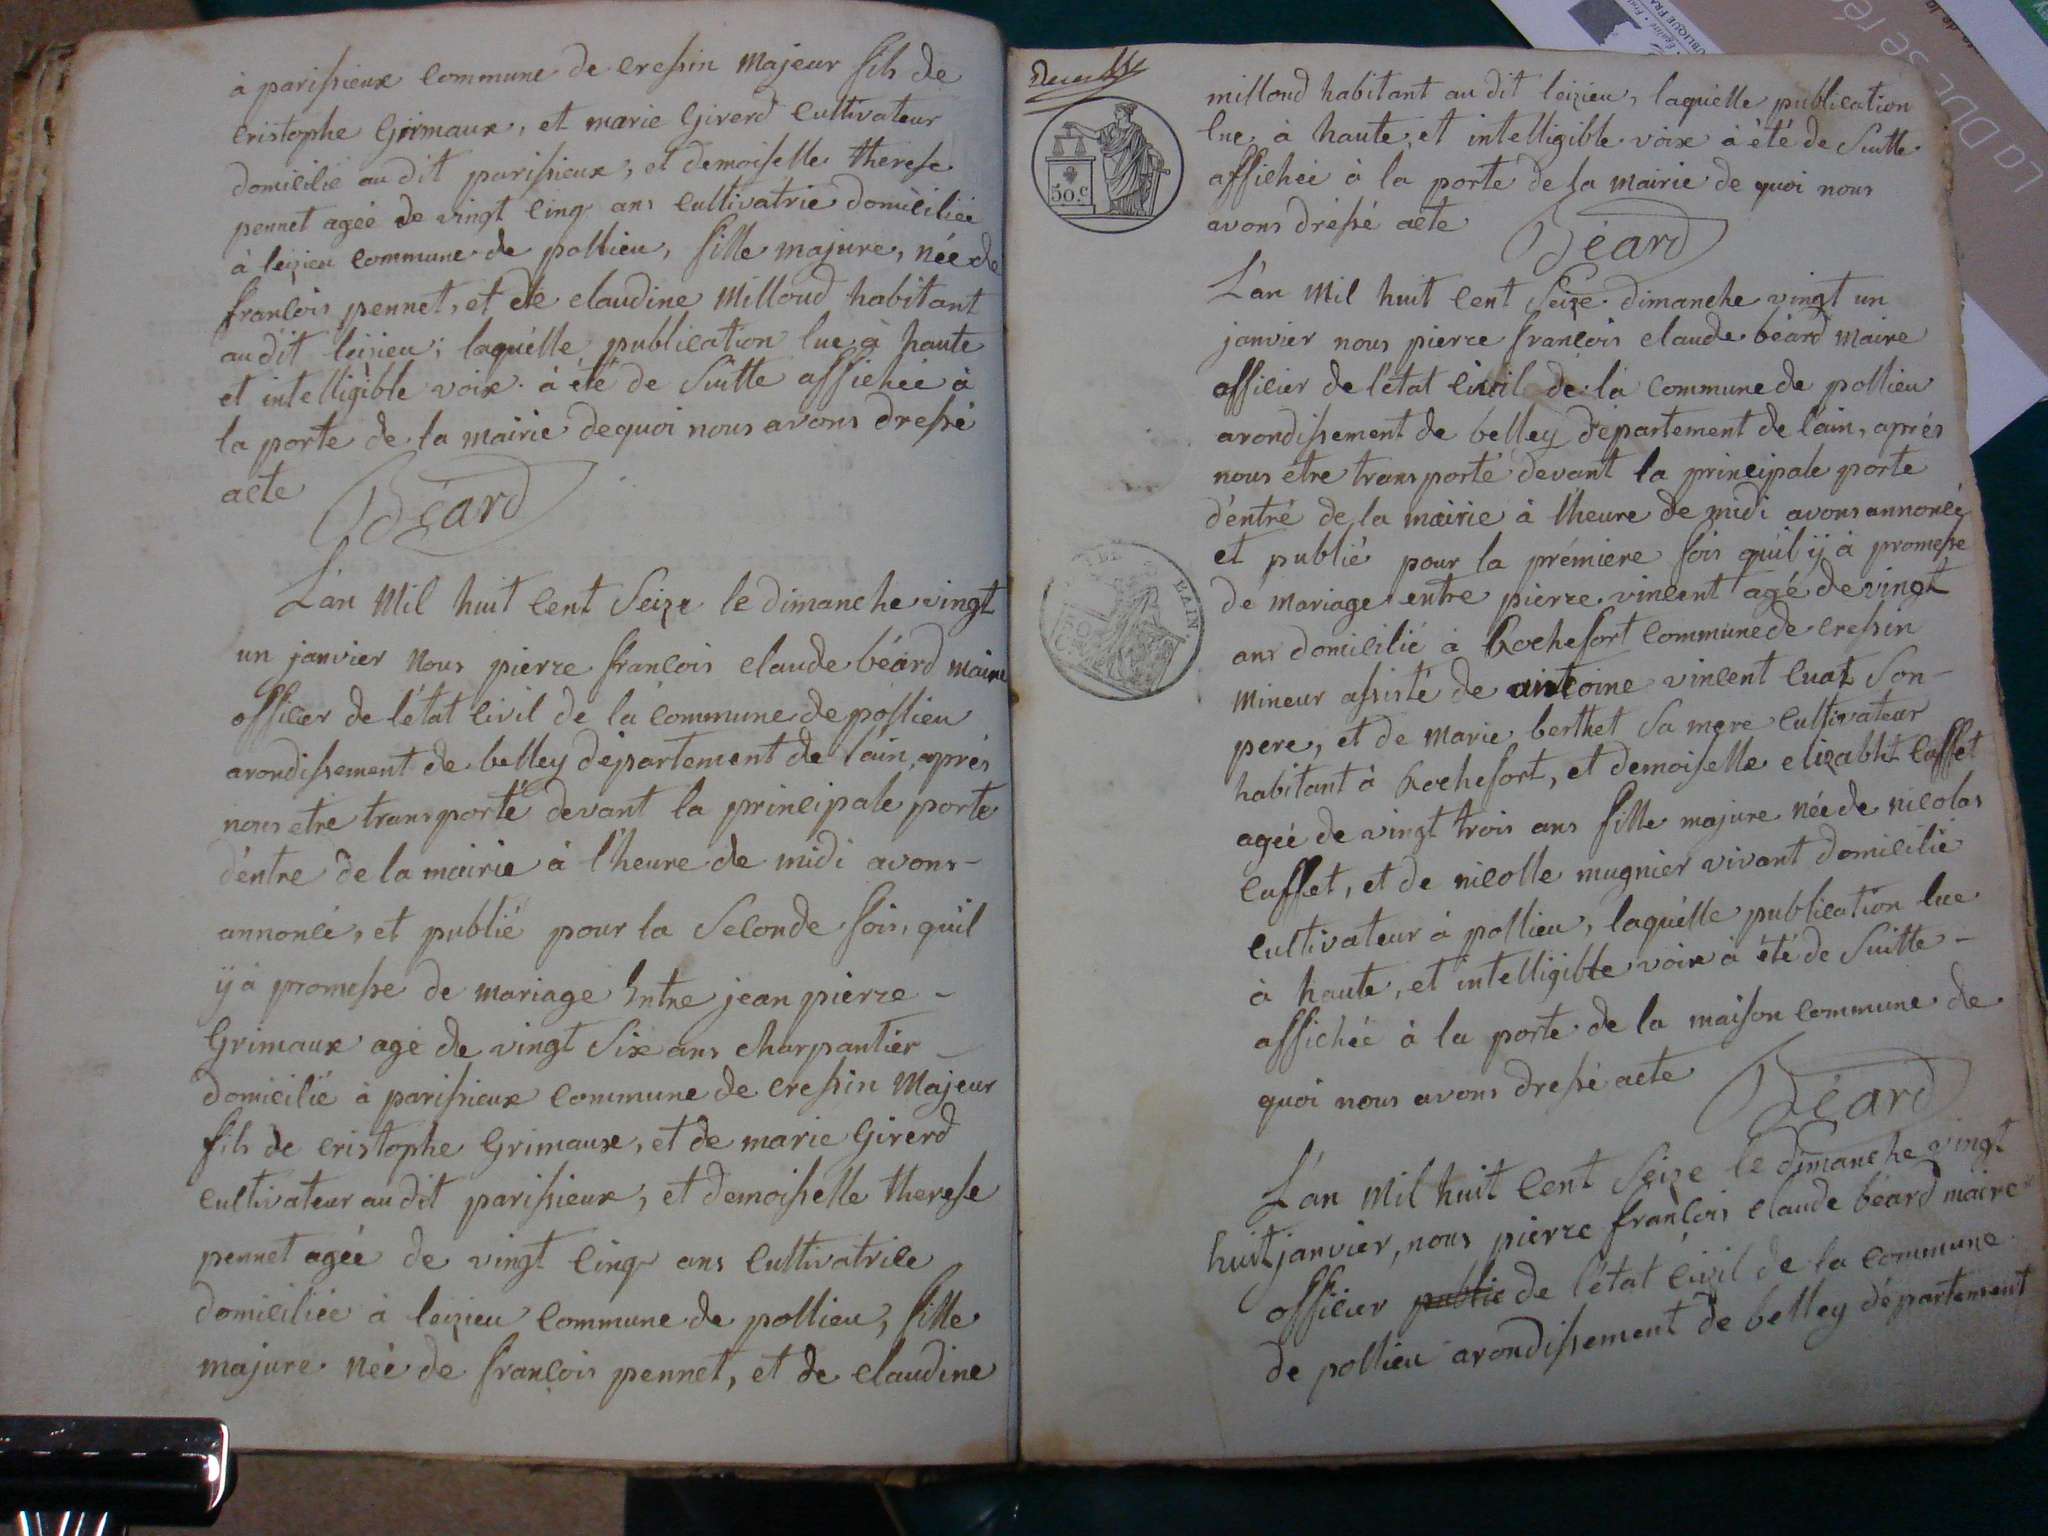 à parissieux commune de cressin Majeur fils de
cristophe Grimaux, et marie Girerd Cultivateur
domicilié au dit parissieux, et demoiselle therese
pennet ageé de vingt Cinq ans Cultivatrie domiciliée
à leizieu commune de pollieu, fille majure, née de
françois pennet, et de claudine Milloud habitant
au dit leizieu; laquélle publication lue à haute
et intelligible voix à été de Suitte affichée à
la porte de la mairie de quoi nous avons dressé
acte Béard
L'an Mil huit Cent Seize le dimanche vingt
un janvier Nous pierre françois claude béard maire
officier de l'état Civil de la commune de pollieu
arondissement de belley département de l'ain, après
nous etre transporté devant la principale porte
d'éntre de la mairie à l'heure de midi avons-
annoncé, et publié pour la Seconde fois, qu'il
ÿ à promesse de mariage Entre jean pierre -
Grimaux agé de vingt Six ans charpantier -
domicilié à parissieux commune de cressin Majeur
fils de cristophe Grimaux, et de marie Girerd
cultivateur au dit parissieux, et demoiselle therese
pennet agée de vingt Cinq ans Cultivatrice
domiciliée à leizieu commune de pollieu, fille
majure née de françois pennet, et de claudine
50.C
milloud habitant au dit leizieu, laquelle publication
lue, à haute, et intelligible voix à été de Suitte
affichée à la porte de la mairie de quoi nous
avons dréssé acte Béard
L'an Mil huit Cent Seize dimanche vingt un
janvier nous pierre françois claude béard Maire
officier de l'état Civil de la commune de pollieu
arondissement de belley département de l'ain, après
nous etre transporté devant la principale porte
d'éntré de la mairie à l'heure de midi avons annoncé
et publié pour la prémiere fois qu'il ÿ à promesse
de mariage entre pierre vincent agé de vingt
ans domicilié à Rochefort commune de cressin
Mineur assisté de antoine vincent Son -
pere, et de marie berthet Sa mere Cultivateur
habitant à Rochefort, et demoiselle Cuffet
ageé de vingt trois ans fille majure née de nicolas
Cuffet, et de nicolle mugnier vivant domicilié
Cultivateur à pollieu, laquélle publication lue
à haute, et intelligible voix à été de Suitte -
affichée à la porte de la maison commune de
quoi nous avons dressé acte Béard
L'an Mil huit Cent Seize le dimanche vingt
huit janvier, nous pierre françois claude béard maire
officier public de l'état civil de la commune
de pollieu arondissement de belley département